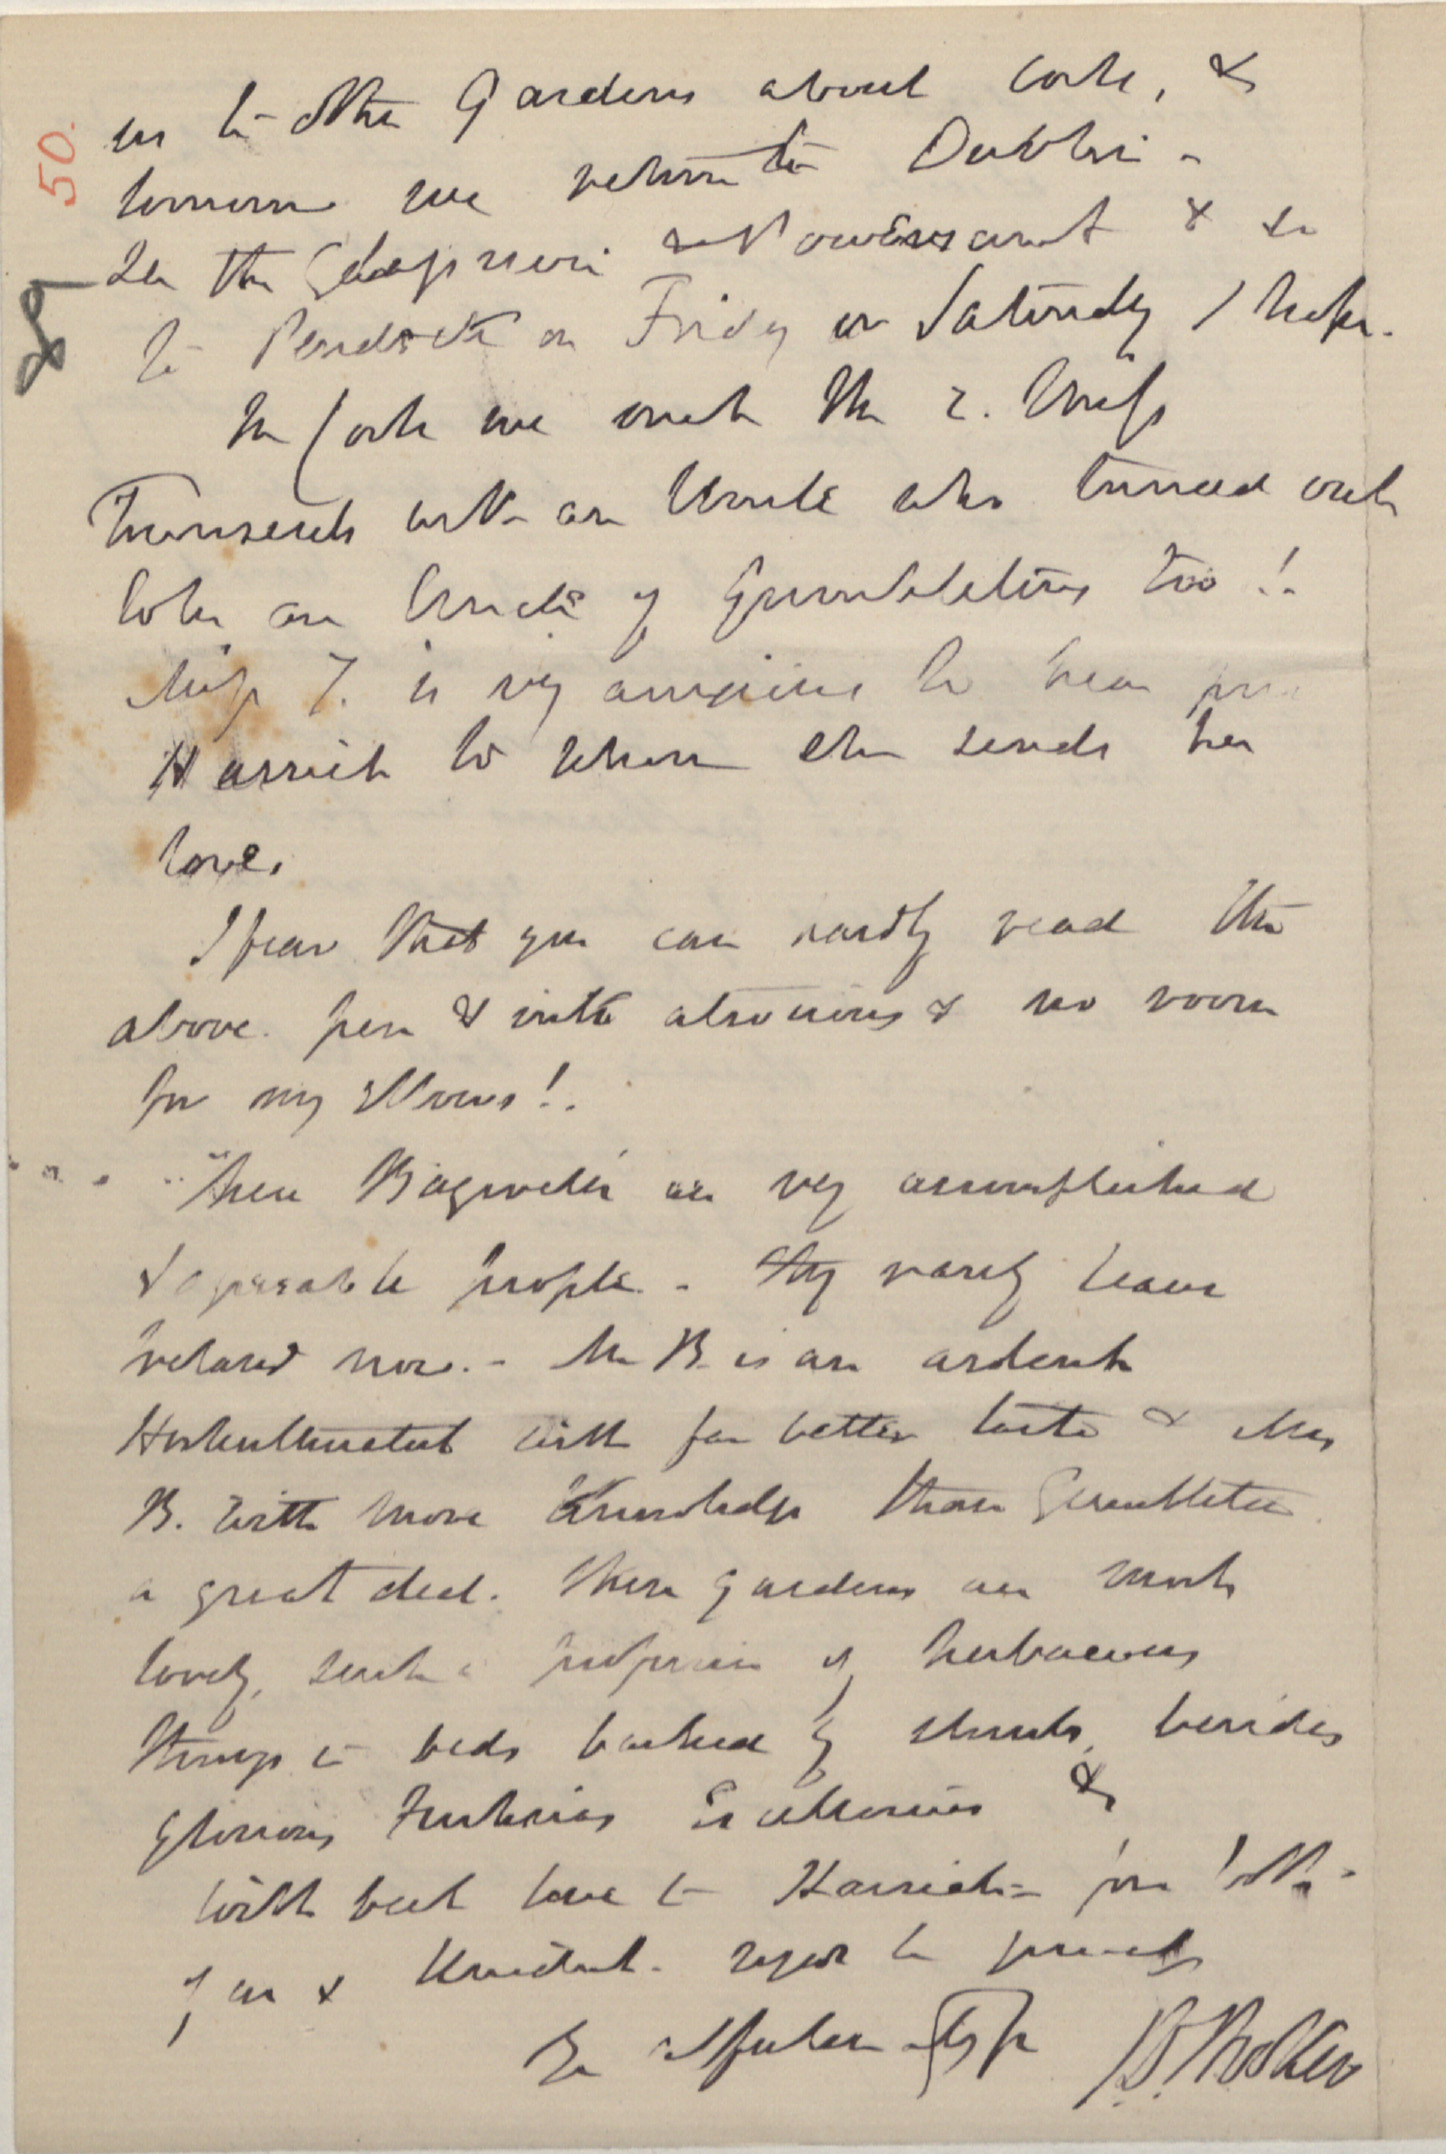 50.
us to other Gardens about Cork, &
tomorrow we return to Dublin -
see the Glasnevin & Powerscourt & so
to Pendock on Friday or Saturday I hope.
In Cork we met the 2. Miss
Townsends with an Uncle who turned out
to be an Uncle of Gumbletons too!.
Miss T. is very anxious to hear from
Harriet to whom she sends her
love.
I fear that you can hardly read the
above. pen & ink atrocious & no room
for my elbows!.
These Bagwells are very accomplished
& agreeable people. - They rarely leave
Ireland now. - Mr B. is an ardent
Horticulturalist with far better taste & Mrs
B. with more knowledge than Gumbleton
a great deal. These gardens are most
lovely, such a profusion of herbaceous
things in beds backed by shrubs, besides
glorious Fuchsias Escallonias &
With best love to Harriet from both
of us & kindest regards to
Yr affectionate
J D Hooker